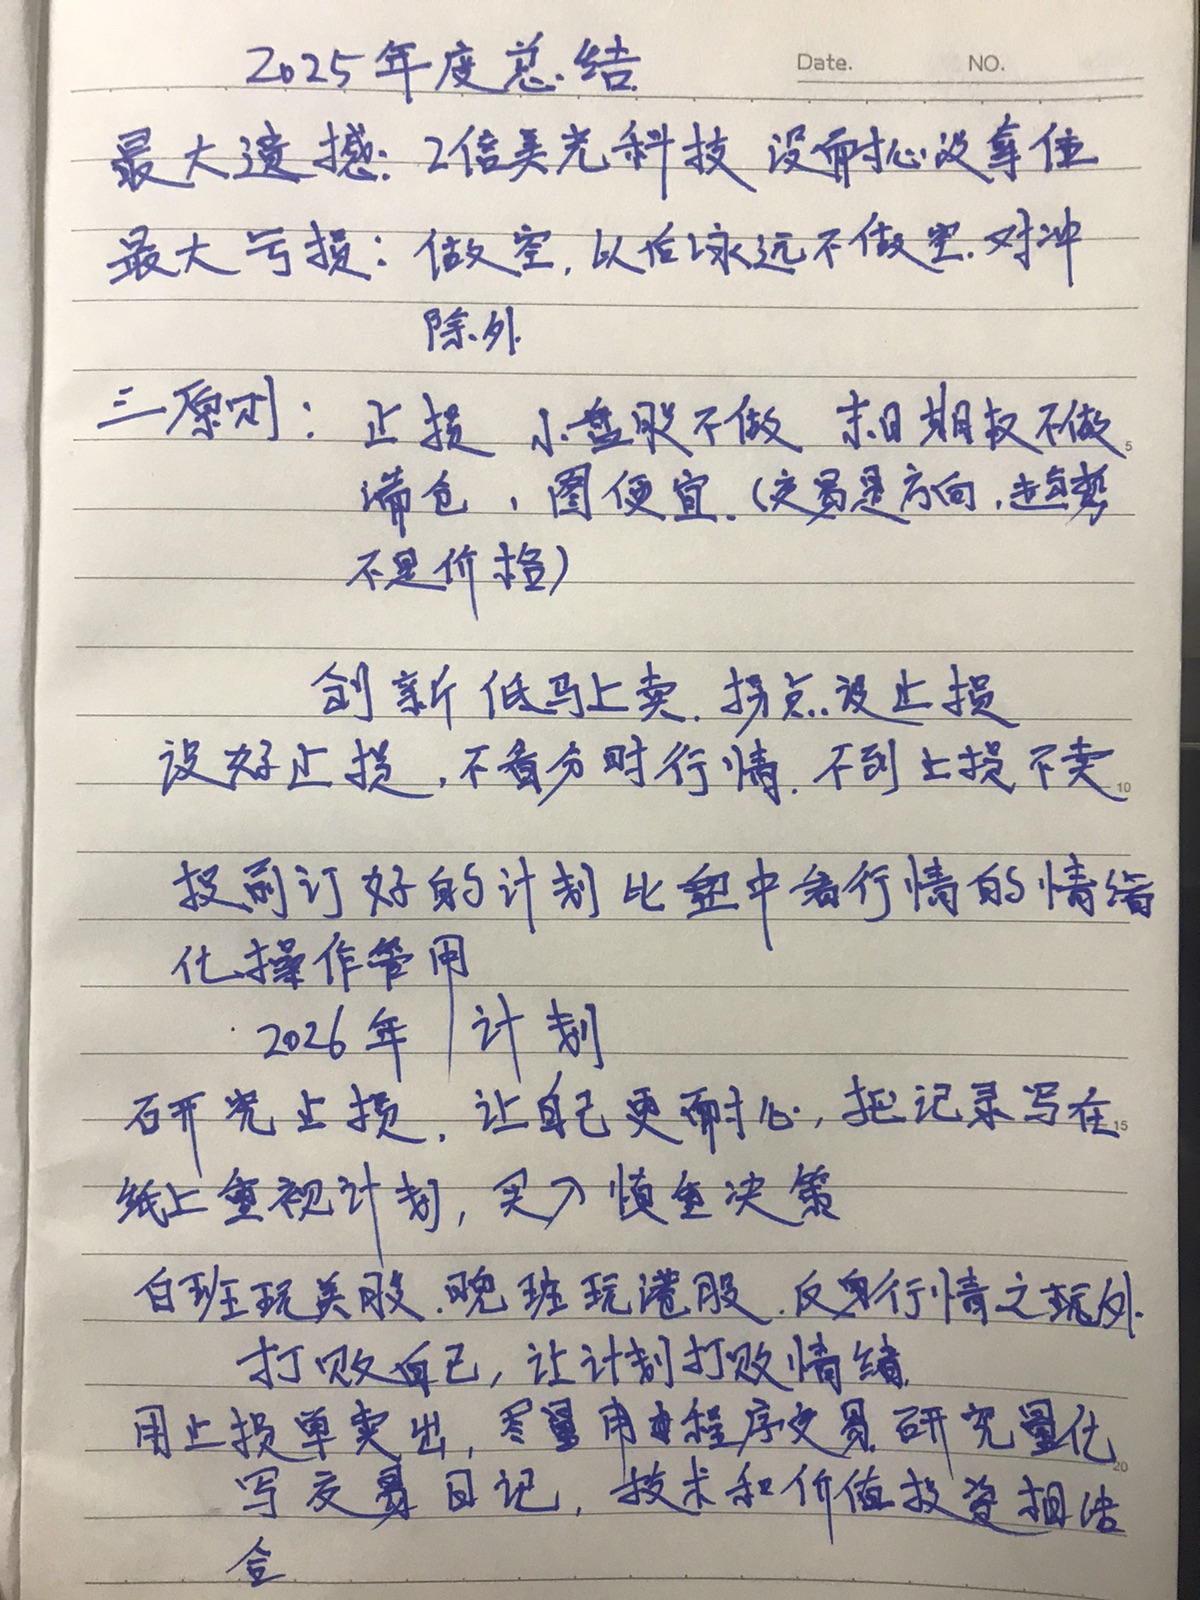 2025年度总结
Date. NO.
最大遗憾: 2倍美光科技 没耐心没拿住
最大亏损: 做空, 以后永远不做空. 对冲
除外.
三原则: 止损 小盘股不做 末日期权不做
5
满仓, 图便宜. (交易是方向, 趋势
不是价格)
创新低马上卖. 拐点设止损
设好止损, 不看分时行情. 不到止损不卖
10
投前订好的计划比盘中看行情的情绪
化操作管用
2026年 计划
研究止损, 让自己更耐心, 把记录写在
15
纸上重视计划, 买入慎重决策
白班玩美股. 晚班玩港股. 反身行情之玩外.
打败自己, 让计划打败情绪.
用止损单卖出, 尽量用程序交易 研究量化
20
写交易日记, 技术和价值投资相结
合